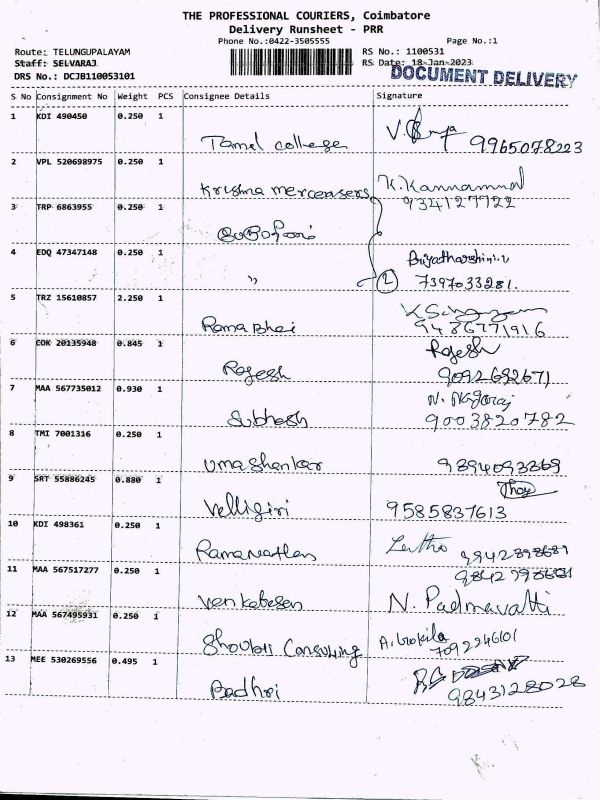 THE PROFESSIONAL COURIERS, Coimbatore
Delivery Runsheet - PRR
Phone No.:0422-3505555 Page No.:1
Route: TELUNGUPALAYAM RS No.: 1100531
Staff: SELVARAJ RS Date: 18-Jan-2023
DRS No.: DCJB110053101 DOCUMENT DELIVERY
S No Consignment No Weight PCS Consignee Details Signature
1 KDI 490450 0.250 1
Tamil college 9965078223
2 VPL 520698975 0.250 1
Krishna K. Kannammal
934127722
3 TRP 6863955 0.250 1
4 EDQ 47347148 0.250 1
Priyatharshini.V
" 2 7397033281.
5 TRZ 15610857 2.250 1
Rama Bhai 9486771916
6 COK 20135948 0.845 1 Rajesh
Rajesh 9092692671
7 MAA 567735012 0.930 1 N. Nagaraj
Subhash 9003820782
8 TMI 7001316 0.250 1
Uma Shankar 9894093369
9 SRT 55886245 0.880 1
Velligiri 9585837613
10 KDI 498361 0.250 1
Ramanathan
11 MAA 567517277 0.250 1
Venkatesan N. Padmavathi
12 MAA 567495931 0.250 1
Consulting A. Gokila
7092246101
13 MEE 530269556 0.495 1
Badhri 9843128028